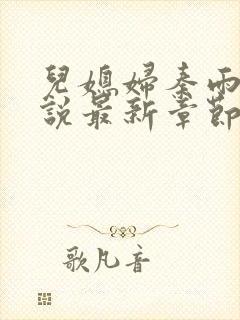 兒媳婦秦雨
說最新章節
歌凡音